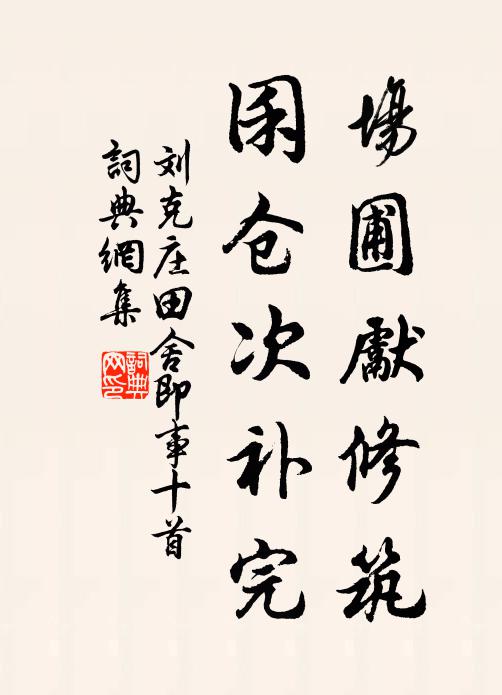 場圃獻修筑
囷仓次补完
刘克庄田舍即事十首
詞典網集
詞典
网印